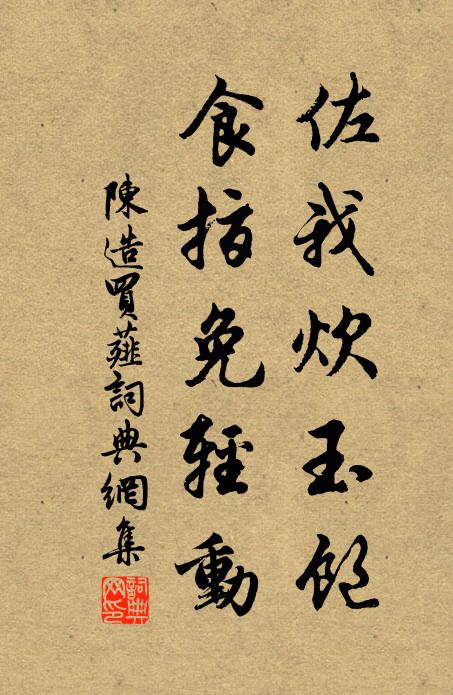 佐我炊玉飽
食指免輕動
陳造買薤詞典網集
詞典網印